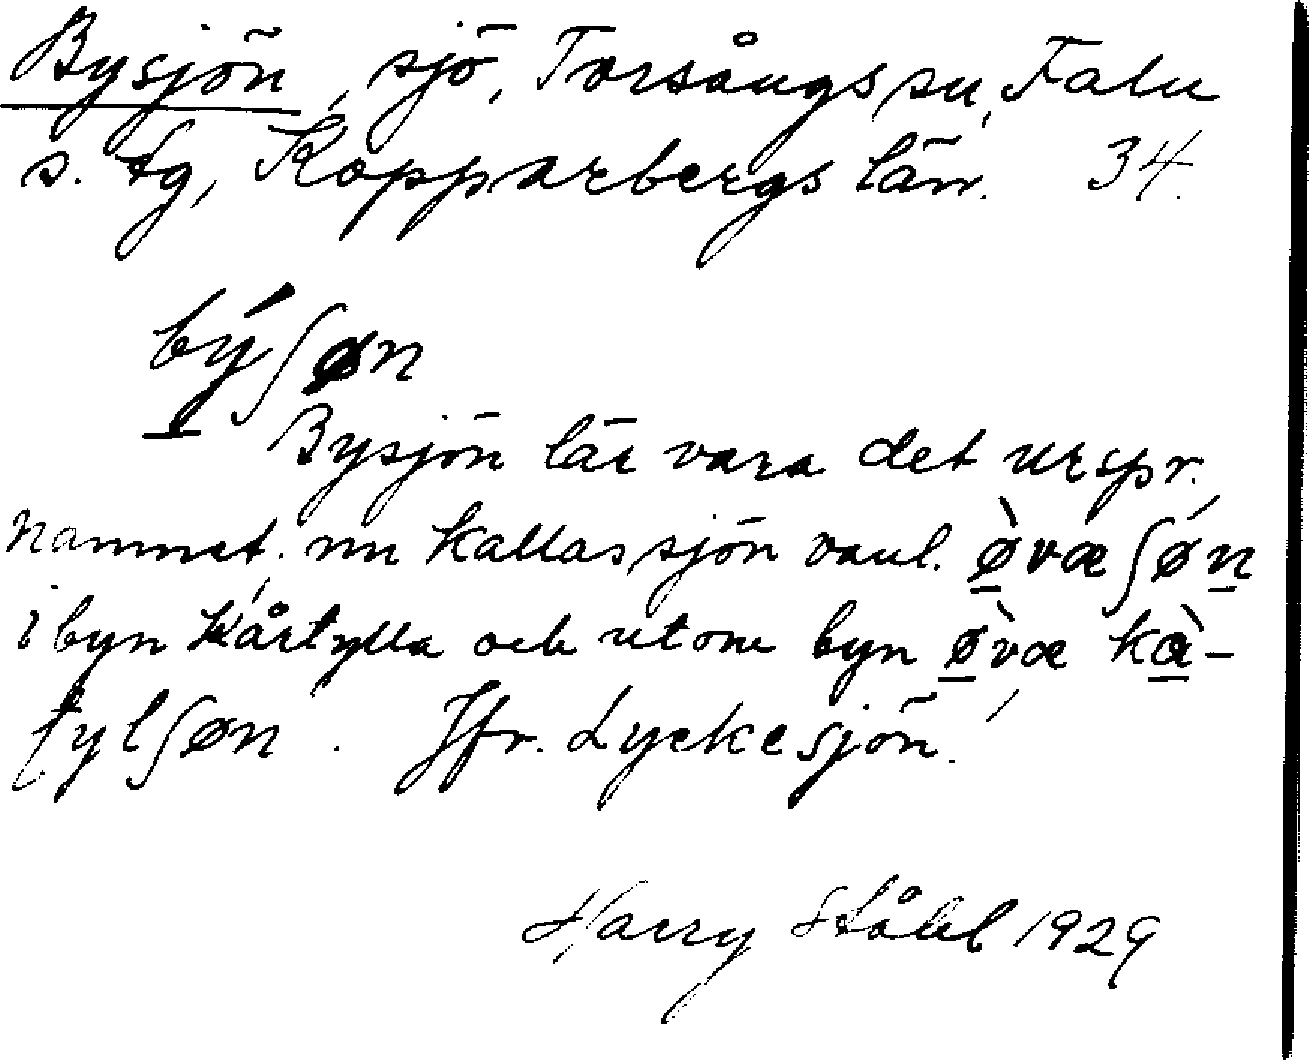 Bysjön, sjö, Torsångs sn, Falu
s. tg, Kopparbergs län. 34.
býʃøn
Bysjön lär vara det urspr.
namnet; nu kallas sjön vanl. ø̀væʃøn
i byn Kårtylla och utom byn ø̀væ kà-
tylʃøn. Jfr. Lyckesjön.
Harry Ståhl 1929